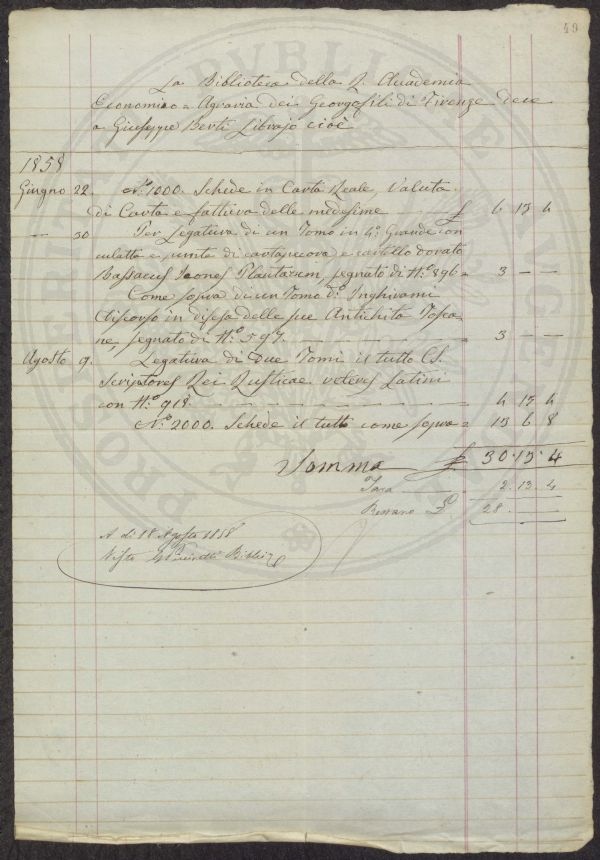 49
La Biblioteca della R. Accademia
Economico = Agraria dei Georgofili di Firenze deve
a Giuseppe Berti Librajo cioè
1858
Giugno 22 N.º 1000. Schède in Carta Reale, Valuta
di Carta e fattura delle medesime £ 6 13 4
— 30 Per Legatura di un Tomo in 4.º Grande con
culatta e punte di cartapecora e cartello dorato
Icones Plantarum, segnato di N.º 896 = 3 — —
Come sopra di un Tomo d.º Inghirami
discorso in difesa delle sue Antichità Tosca
ne, segnato di N.º 597. 3 — —
Agosto 9. Legatura di Due Tomi il tutto C.S.
Scriptores Rei Rusticae veteres Latini
con N.º 918 4 13 4
N.º 2000. Schède il tutto come sopra = 13 6 8
Somma £ 30.13.4
Tara 2.13.4
Restano £ 28 — —
A dì 18 Agosto 1858
Visto
PVBLICAE
PROSPERITATI